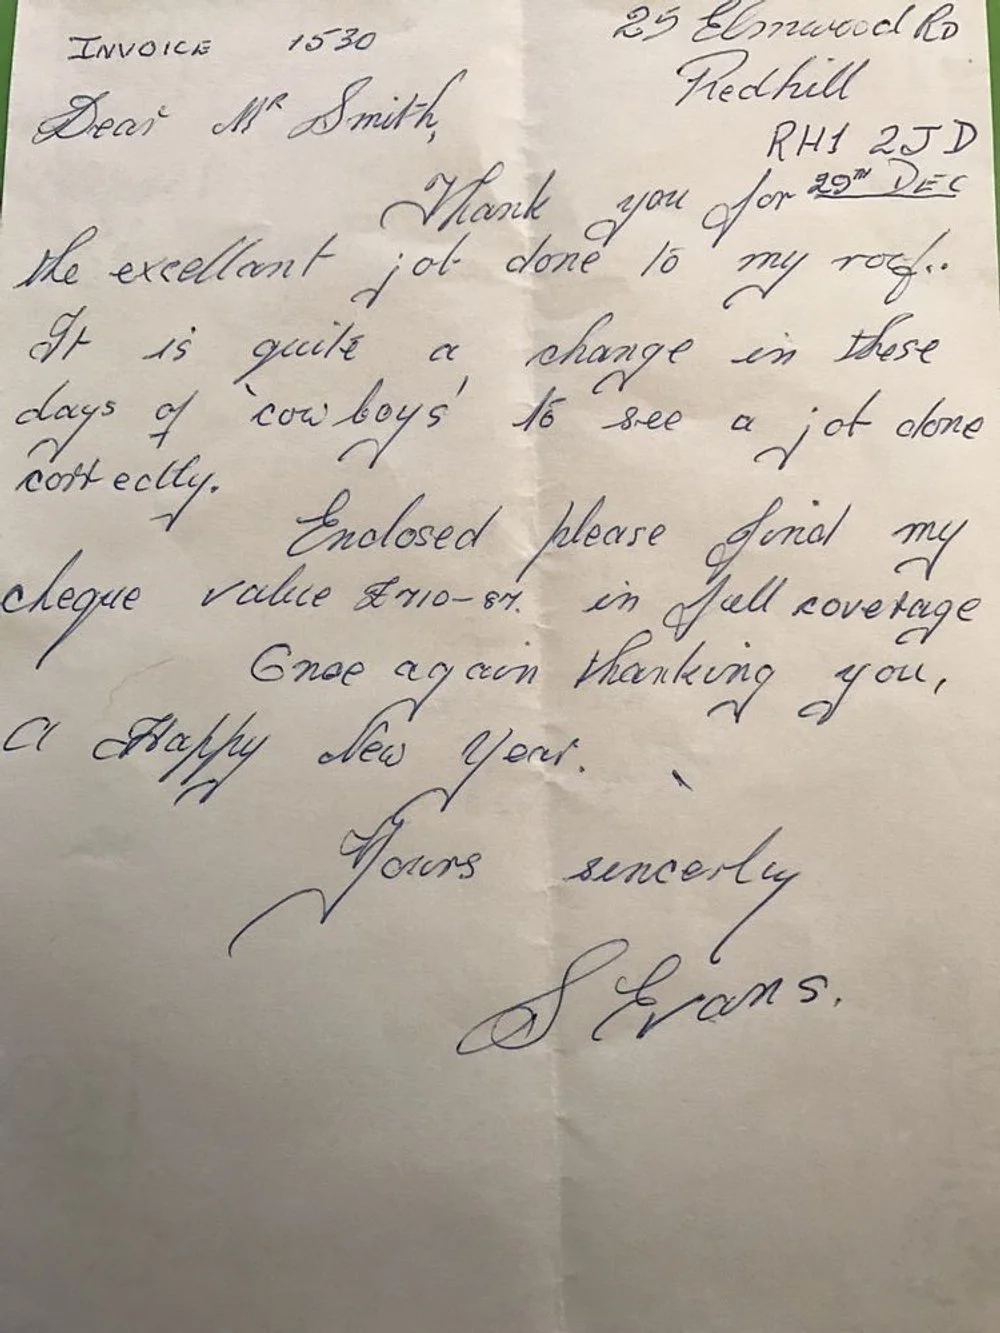 INVOICE 1530
25 Elmwood Rd
Redhill
RH1 2JD
29TH DEC
Dear Mr Smith,
Thank you for
the excellant job done to my roof..
It is quite a change in these
days of 'cowboys' to see a job done
correctly.
Enclosed please find my
cheque value £710-87. in full coverage
Once again thanking you,
A Happy New Year.
Yours sincerly
S Evans.